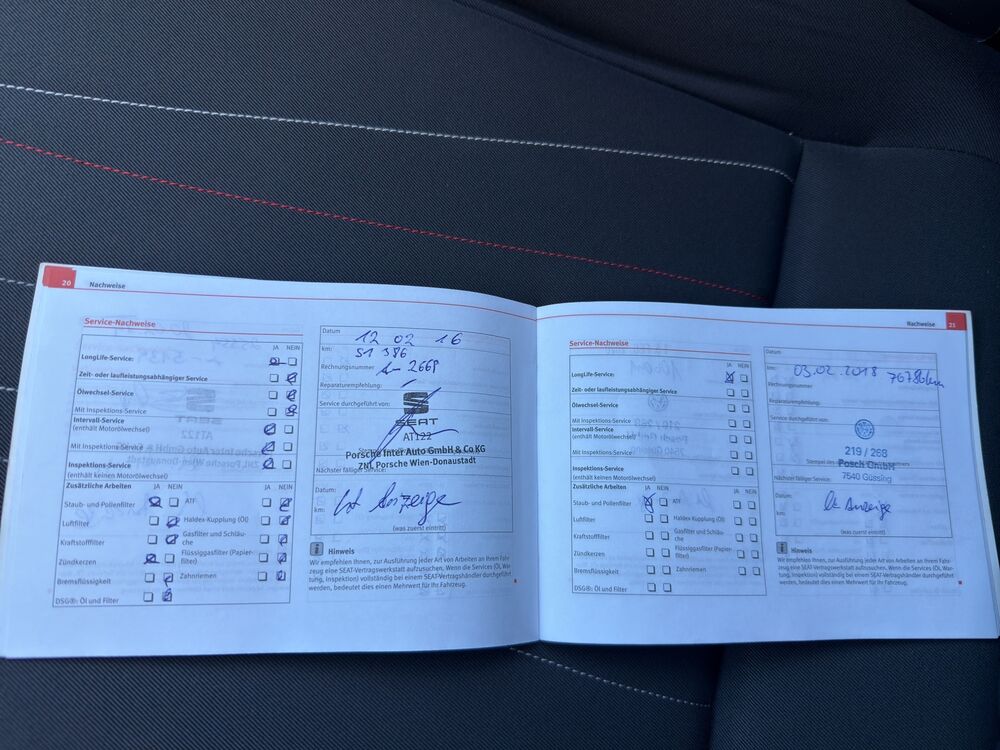 20
Nachweise
Service-Nachweise
JA NEIN
LongLife-Service:
Zeit- oder laufleistungsabhängiger Service
Ölwechsel-Service
Mit Inspektions-Service
Intervall-Service
(enthält Motorölwechsel)
Mit Inspektions-Service
Inspektions-Service
(enthält keinen Motorölwechsel)
Zusätzliche Arbeiten
JA NEIN JA NEIN
Staub- und Pollenfilter ATF
Luftfilter Haldex-Kupplung (Öl)
Kraftstofffilter Gasfilter und Schläu-
che
Zündkerzen Flüssiggasfilter (Papier-
filter)
Bremsflüssigkeit Zahnriemen
DSG®: Öl und Filter
Datum 12 02 16
km: 51 386
Rechnungsnummer 2669
Reparaturempfehlung:
Service durchgeführt von:
SEAT
AT122
Porsche Inter Auto GmbH & Co KG
ZNL Porsche Wien-Donaustadt
Nächster fälliger Service:
Datum:
km: lt Anzeige
(was zuerst eintritt)
Hinweis
Wir empfehlen Ihnen, zur Ausführung jeder Art von Arbeiten an Ihrem Fahr-
zeug eine SEAT-Vertragswerkstatt aufzusuchen. Wenn die Services (Öl, War-
tung, Inspektion) vollständig bei einem SEAT-Vertragshändler durchgeführt
werden, bedeutet dies einen Mehrwert für Ihr Fahrzeug.
Nachweise
21
Service-Nachweise
JA NEIN
LongLife-Service:
Zeit- oder laufleistungsabhängiger Service
Ölwechsel-Service
Mit Inspektions-Service
Intervall-Service
(enthält Motorölwechsel)
Mit Inspektions-Service
Inspektions-Service
(enthält keinen Motorölwechsel)
Zusätzliche Arbeiten
JA NEIN JA NEIN
Staub- und Pollenfilter ATF
Luftfilter Haldex-Kupplung (Öl)
Kraftstofffilter Gasfilter und Schläu-
che
Zündkerzen Flüssiggasfilter (Papier-
filter)
Bremsflüssigkeit Zahnriemen
DSG®: Öl und Filter
Datum
km: 05.02.2018 76786km
Rechnungsnummer
Reparaturempfehlung:
Service durchgeführt von:
219 / 268
Posch GmbH
Nächster fälliger Service: 7540 Güssing
Datum:
km: lt Anzeige
(was zuerst eintritt)
Hinweis
Wir empfehlen Ihnen, zur Ausführung jeder Art von Arbeiten an Ihrem Fahr-
zeug eine SEAT-Vertragswerkstatt aufzusuchen. Wenn die Services (Öl, War-
tung, Inspektion) vollständig bei einem SEAT-Vertragshändler durchgeführt
werden, bedeutet dies einen Mehrwert für Ihr Fahrzeug.